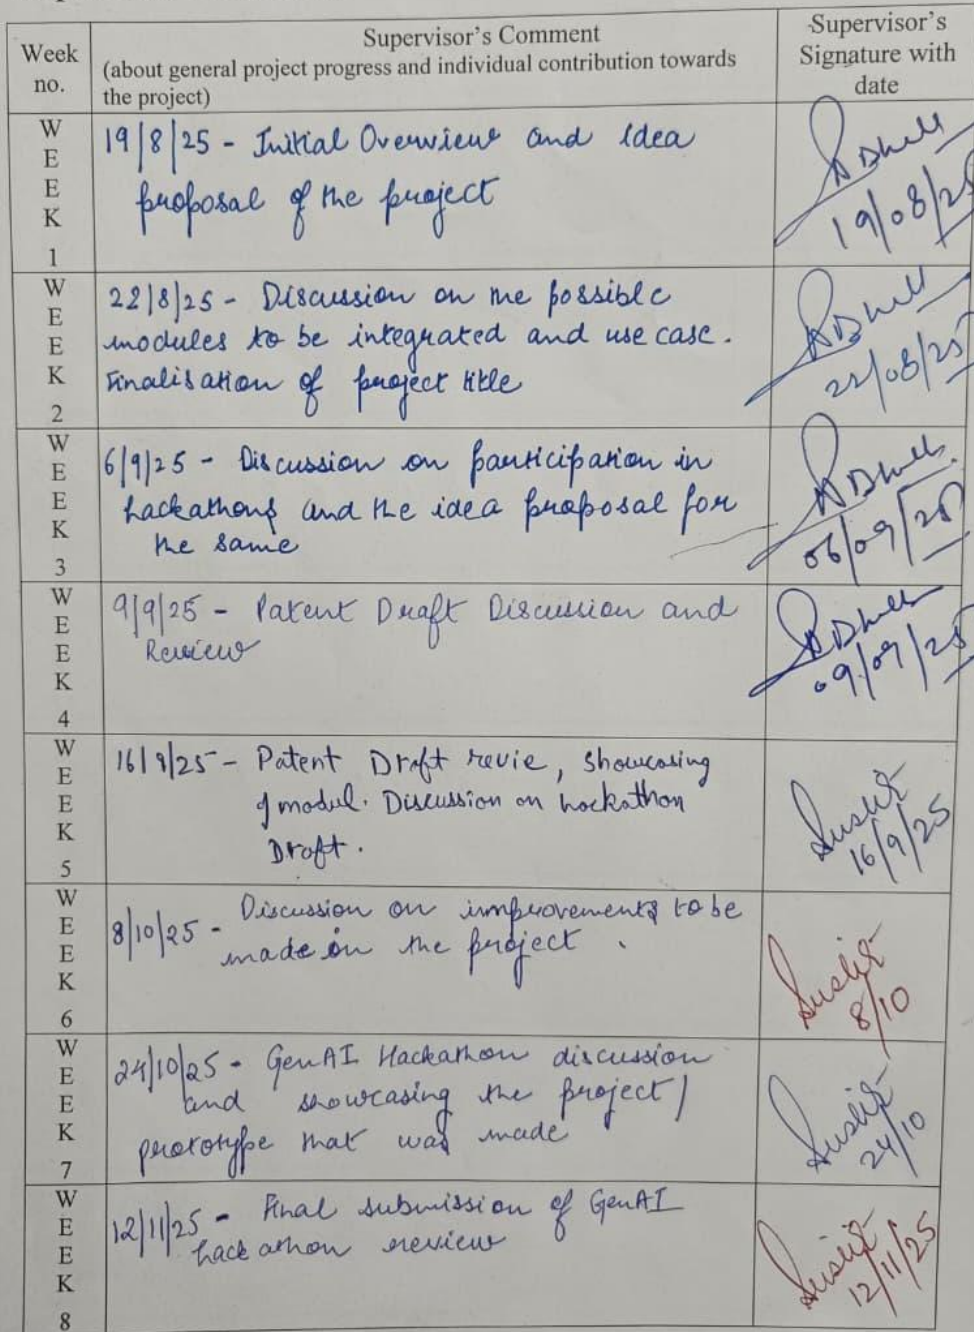 Week no.
Supervisor's Comment
(about general project progress and individual contribution towards
the project)
Supervisor's
Signature with
date
WEEK 1
19/8/25 - Initial Overview and Idea
proposal of the project
19/08/25
WEEK 2
22/8/25 - Discussion on the possible
modules to be integrated and use case.
Finalisation of project title
22/08/25
WEEK 3
6/9/25 - Discussion on participation in
hackathons and the idea proposal for
the same
06/09/25
WEEK 4
9/9/25 - Patent Draft Discussion and
Review
09/09/25
WEEK 5
16/9/25 - Patent Draft revie, showcasing
of modul. Discussion on hackathon
Draft.
16/9/25
WEEK 6
8/10/25 - Discussion on improvements to be
made on the project.
8/10
WEEK 7
24/10/25 - GenAI Hackathon discussion
and showcasing the project/
prototype that was made
24/10
WEEK 8
12/11/25 - Final submission of GenAI
hackathon review
12/11/25